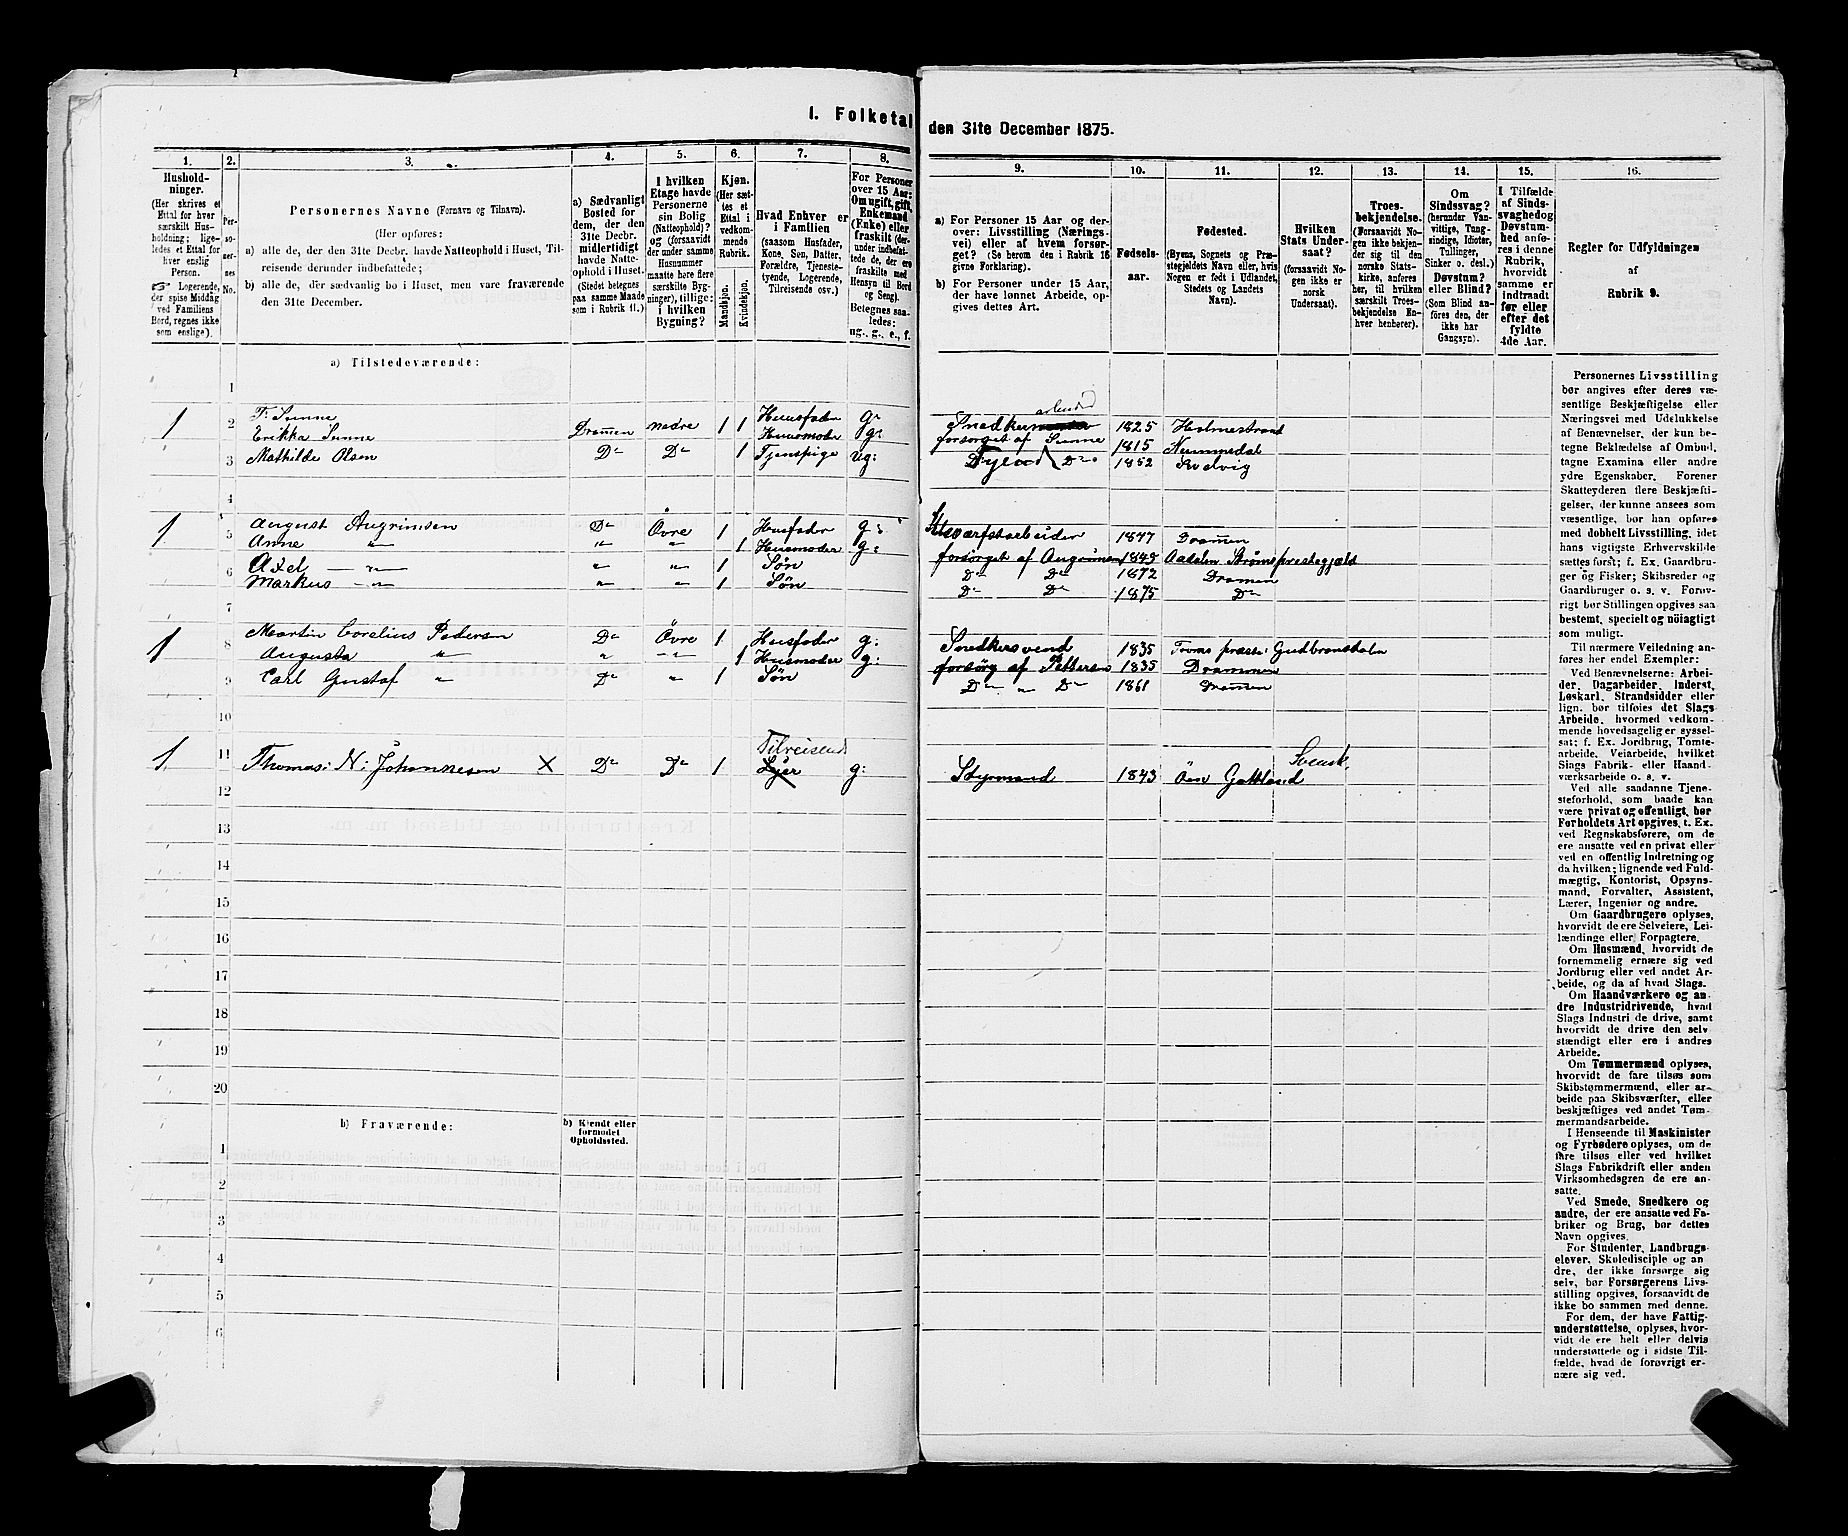 I. Folketal den 31te December 1875.
1. 2. 3. 4. 5. 6. 7. 8. 9. 10. 11. 12. 13. 14. 15. 16.
Hushold-
ninger.
(Her skrives et
Ettal for hver
særskilt Hus-
holdning; lige-
ledes et Ettal for
hver enslig
Person.
Logerende,
der spise Middag
ved Familiens
Bord, regnes ikke
som enslige).
Per-
so-
ner-
nes
No.
Personernes Navne (Fornavn og Tilnavn).
(Her opføres:
a) alle de, der den 31te Decbr. havde Natteophold i Huset, Til-
reisende derunder indbefattede;
b) alle de, der sædvanlig bo i Huset, men vare fraværende
den 31te December.
a) Sædvanligt
Bosted for
dem, der den
31te Decbr.
midlertidigt
havde Natte-
ophold i Huset.
(Stedet betegnes
paa samme Maade
som i Rubrik 11.)
I hvilken
Etage havde
Personerne
sin Bolig
(Natteophold)?
og (forsaavidt
der under samme
Husnummer
maatte høre flere
særskilte Byg-
ninger), tillige:
i hvilken
Bygning?
Kjøn.
(Her sæt-
tes et
Ettal i
vedkom-
mende
Rubrik.
Mandkjøn.
Kvindekjøn.
Hvad Enhver er
i Familien
(saasom Husfader,
Kone, Søn, Datter,
Forældre, Tjeneste-
tyende, Logerende,
Tilreisende osv.)
For Personer
over 15 Aar:
Om ugift, gift,
Enkemand
(Enke) eller
fraskilt (der-
under indbefat-
tede de, der ere
fraskilte med
Hensyn til Bord
og Seng).
Betegnes saa-
ledes:
ug., g., e., f.
a) For Personer 15 Aar og der-
over: Livsstilling (Nærings-
vei) eller af hvem forsør-
get? (Se herom den i Rubrik 16
givne Forklaring).
b) For Personer under 15 Aar,
der have lønnet Arbeide, op-
gives dettes Art.
Fødsels-
aar.
Fødested.
(Byens, Sognets og Præ-
stegjeldets Navn eller, hvis
Nogen er født i Udlandet,
Stedets og Landets
Navn).
Hvilken
Stats Under-
saat?
(forsaavidt No-
gen ikke er
norsk
Undersaat).
Troes-
bekjendelse.
(Forsaavidt No-
gen ikke bekjen-
der sig til den
norske Stats-
kirke, anføres
her, til hvilken
særskilt Troes-
bekjendelse En-
hver henhører).
Om
Sindssvag?
(herunder Van-
vittige, Tung-
sindige, Idioter,
Tullinger,
Sinker o. desl.)
Døvstum?
eller Blind?
(Som Blind an-
føres den, der
ikke har
Gangsyn).
I Tilfælde
af Sinds-
svaghed og
Døvstum-
hed anfø-
res i denne
Rubrik,
hvorvidt
samme er
indtraadt
før eller
efter det
fyldte
4de Aar.
Regler for Udfyldningen
af
Rubrik 9.
a) Tilstedeværende:
1
1 2 F. Sunne nedre 1 Huusfader g: Snedker arbeid 1825 Holmestrand
Erikka Sunne Dramen 1 Huusmoder g: forsørget af Sunne 1815 Nummedal
3 Mathilde Olsen Do Do 1 Tjenspige ug: Do 1852 Rødvig
4
1 5 August Angrimsen Do Övre 1 Husfader g: 1847 Dramen
Anne " " " 1 Husmoder g: forsörget af Angrimsen 1849 Aadalen Strömsprestegjeld
6 Axel — " — " " 1 Sön Do Do 1872 Dramen
Markus — " — " " 1 Sön Do Do 1875 Do
7
1 8 Martin Corelius Pedersen Do Övre 1 Husfader g: Snedkersvend 1835 præste: Gudbransdalen
Augusta " " — " — 1 Husmoder g: forsörg af Pettersen 1835 Drammen
9 Carl Gustaf " Do " 1 Sön Do " Do 1861 Dramen
10
1 11 Thomas: N: Johannesen X Do Do 1 Tilreisend Lojer g: Styrmand 1843 Öen Gottland Svensk.
12
13
14
15
16
17
18
19
20
b) Fraværende:
b) Kjendt eller
formodet
Opholdssted.
1
2
3
4
5
6
Personernes Livsstilling
bør angives efter deres væ-
sentlige Beskjæftigelse eller
Næringsvei med Udelukkelse
af Benævnelser, der kun be-
tegne Beklædelse af Ombud,
tagne Examina eller andre
ydre Egenskaber. Forener
Skatteyderen flere Beskjæfti-
gelser, der kunne ansees som
væsentlige, bør han opføres
med dobbelt Livsstilling, idet
hans vigtigste Erhvervskilde
sættes først; f. Ex. Gaardbru-
ger og Fisker; Skibsreder og
Gaardbruger o. s. v. Forøv-
rigt bør Stillingen opgives saa
bestemt, specielt og nøiagtigt
som muligt.
Til nærmere Veiledning an-
føres her endel Exempler:
Ved Benævnelserne: Arbei-
der, Dagarbeider, Inderst,
Løskarl, Strandsidder eller
lign. bør tilføies det Slags
Arbeide, hvormed vedkom-
mende hovedsagelig er syssel-
sat; f. Ex. Jordbrug, Tomte-
arbeide, Veiarbeide, hvilket
Slags Fabrik- eller Haand-
værksarbeide o. s. v.
Ved alle saadanne Tjene-
steforhold, som baade kan
være privat og offentligt, bør
Forholdets Art opgives, t. Ex.
ved Regnskabsførere, om de
ere ansatte ved en privat eller
ved en offentlig Indretning og
da hvilken; lignende ved Fuld-
mægtig, Kontorist, Opsyns-
mand, Forvalter, Assistent,
Lærer, Ingeniør og andre.
Om Gaardbrugere oplyses,
hvorvidt de ere Selveiere, Lei-
lændinge eller Forpagtere.
Om Husmænd, hvorvidt de
fornemmelig ernære sig ved
Jordbrug eller ved andet Ar-
beide, og da af hvad Slags.
Om Haandværkere og an-
dre Industridrivende, hvad
Slags Industri de drive, samt
hvorvidt de drive den selv-
stændigt eller ere i andres
Arbeide.
Om Tømmermænd oplyses,
hvorvidt de fare tilsøs som
Skibstømmermænd, eller ar-
beide paa Skibsværfter, eller
beskjæftiges ved andet Tøm-
mermandsarbeide.
I Henseende til Maskinister
og Fyrbødere oplyses, om de
fare tilsøs eller ved hvilket
Slags Fabrikdrift eller anden
Virksomhedsgren de ere an-
satte.
Ved Smede, Snedkere og
andre, der ere ansatte ved Fa-
briker og Brug, bør dettes
Navn opgives.
For Studenter, Landbrugs-
elever, Skoledisciple og an-
dre, der ikke forsørge sig
selv, bør Forsørgerens Livs-
stilling opgives, forsaavidt de
ikke bo sammen med denne.
For dem, der have Fattig-
understøttelse, oplyses, hvor-
vidt de ere helt eller delvis
understøttede og i sidste Til-
fælde, hvad de forøvrigt er-
nære sig ved.